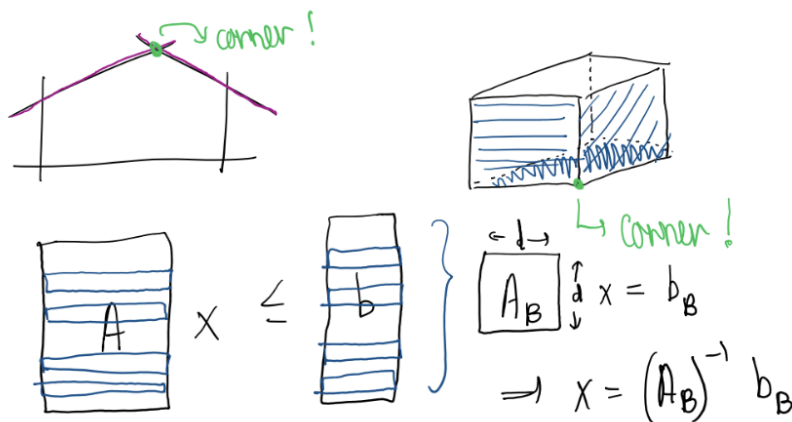 corner!
corner!
A x ≤ b
d
A_B d x = b_B
⇒ x = (A_B)⁻¹ b_B